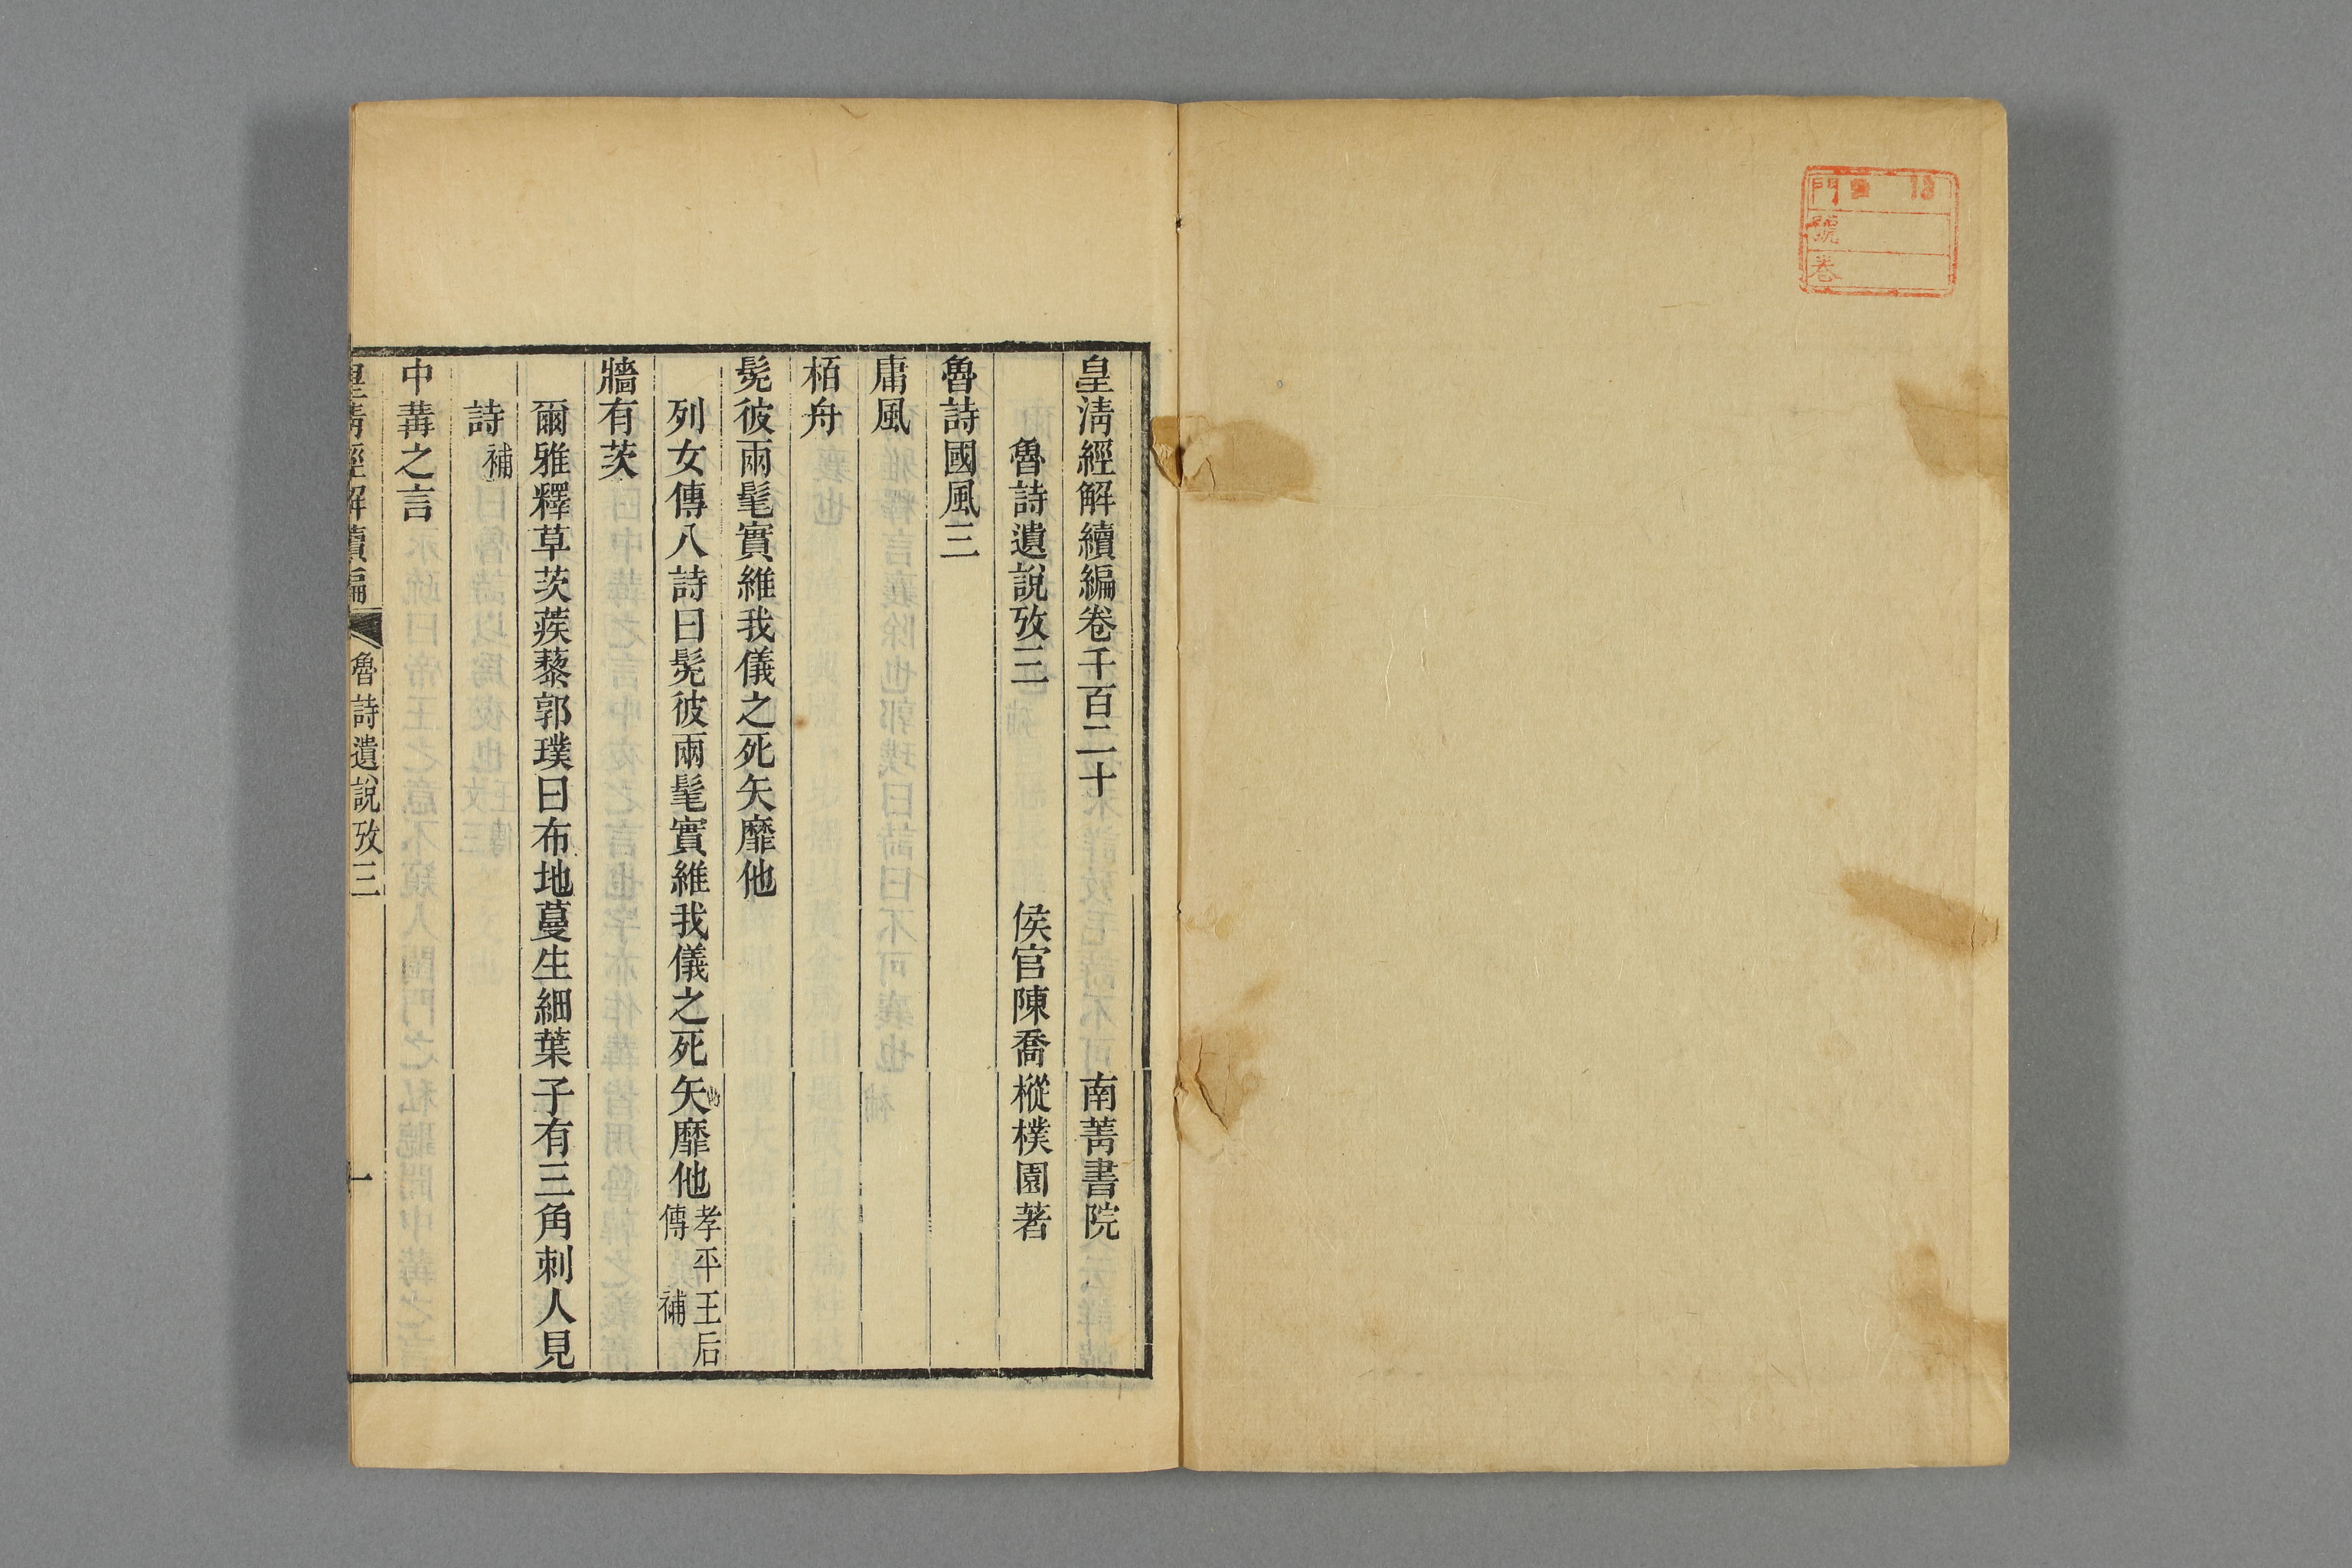 門
號
卷
皇清經解續編卷千百二十
南菁書院
魯詩遺說攷三
侯官陳喬樅樸園著
魯詩國風三
庸風
栢舟
髧彼兩髦實維我儀之死矢靡他
列女傳八詩曰髧彼兩髦實維我儀之死矢靡他孝平王后傳補
牆有茨
爾雅釋草茨蒺藜郭璞曰布地蔓生細葉子有三角刺人見
詩補
中冓之言
皇清經解續編
魯詩遺說攷三
一